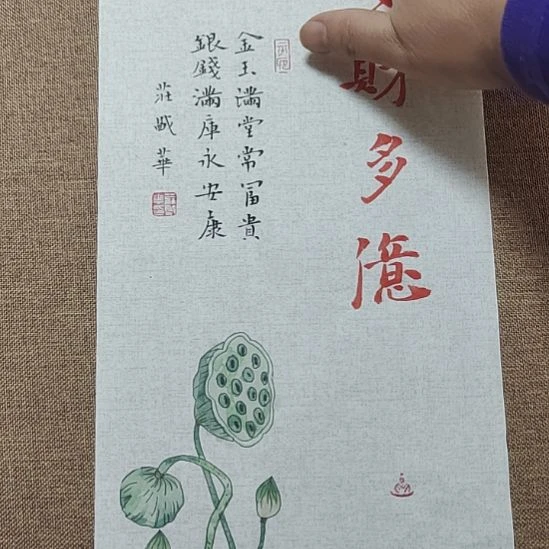 財多億
金玉滿堂常富貴
銀錢滿庫永安康
莊
華